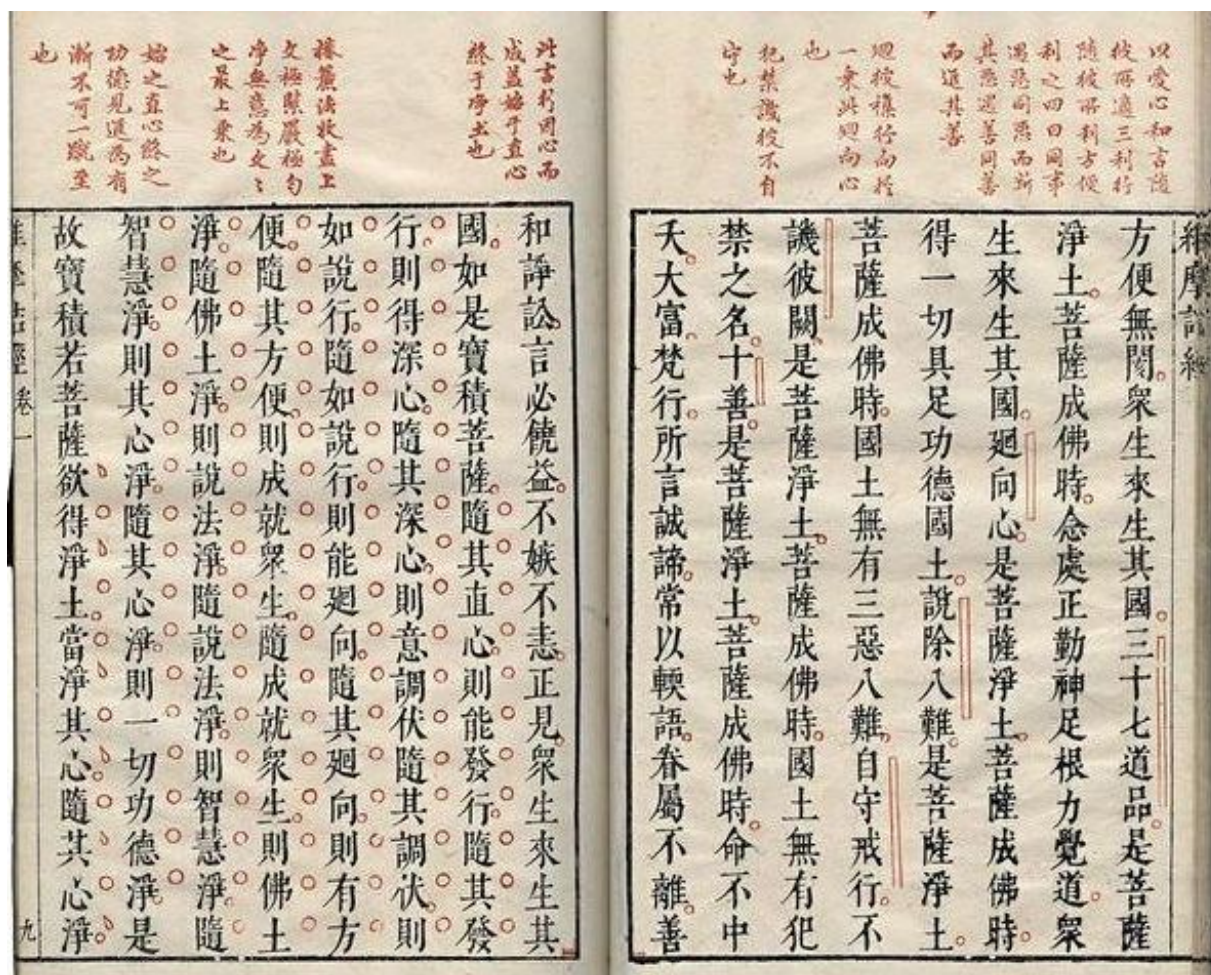 以愛心和言隨
彼所適三利行
隨彼所利方便
利之四曰同事
遇惡同惡而斷
其惡遇善同善
而進其善
廻彼穢行向於
一乗此廻向心
也
犯禁譏彼不自
守也
維摩詰經
方便無閡。衆生來生其國。三十七道品。是菩薩
淨土。菩薩成佛時。念處正勤神足根力覺道。衆
生來生其國。廻向心。是菩薩淨土。菩薩成佛時。
得一切具足功德國土。說除八難。是菩薩淨土。
菩薩成佛時。國土無有三惡八難。自守戒行。不
譏彼闕。是菩薩淨土。菩薩成佛時。國土無有犯
禁之名。十善。是菩薩淨土。菩薩成佛時。命不中
夭。大富。梵行。所言誠諦。常以輭語。眷屬不離。善
此言行因心而
成蓋始于直心
終于淨土也
捲簾法收盡上
文極緊嚴極勻
净無意為文〻
之最上乗也
始之直心終之
功德見道為有
漸不可一蹴至
也
和諍訟。言必饒益。不嫉不恚。正見。衆生來生其
國。如是寶積菩薩。隨其直心。則能發行。隨其發
行。則得深心。隨其深心。則意調伏。隨其調伏。則
如說行。隨如說行。則能廻向。隨其廻向。則有方
便。隨其方便。則成就衆生。隨成就衆生。則佛土
淨。隨佛土淨。則說法淨。隨說法淨。則智慧淨。隨
智慧淨。則其心淨。隨其心淨。則一切功德淨。是
故寶積若菩薩欲得淨土。當淨其心。隨其心淨。
維摩詰經 卷一 九